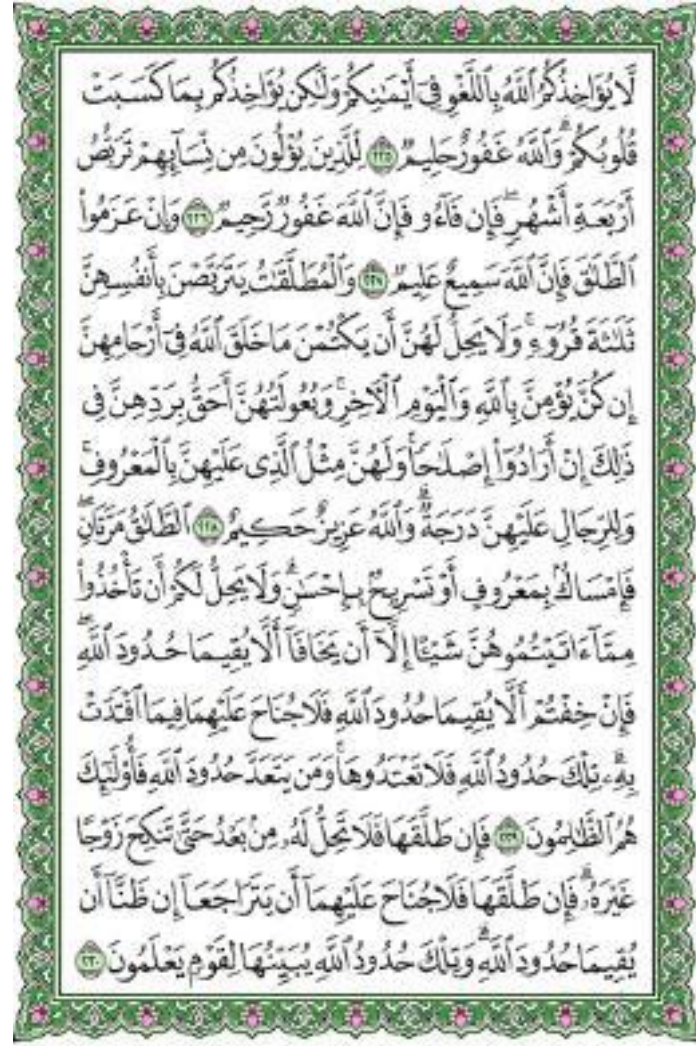 لَّا يُؤَاخِذُكُمُ ٱللَّهُ بِٱللَّغْوِ فِىٓ أَيْمَـٰنِكُمْ وَلَـٰكِن يُؤَاخِذُكُم بِمَا كَسَبَتْ
قُلُوبُكُمْ ۗ وَٱللَّهُ غَفُورٌ حَلِيمٌ ٢٢٥ لِّلَّذِينَ يُؤْلُونَ مِن نِّسَآئِهِمْ تَرَبُّصُ
أَرْبَعَةِ أَشْهُرٍ ۖ فَإِن فَآءُو فَإِنَّ ٱللَّهَ غَفُورٌ رَّحِيمٌ ٢٢٦ وَإِنْ عَزَمُوا۟
ٱلطَّلَـٰقَ فَإِنَّ ٱللَّهَ سَمِيعٌ عَلِيمٌ ٢٢٧ وَٱلْمُطَلَّقَـٰتُ يَتَرَبَّصْنَ بِأَنفُسِهِنَّ
ثَلَـٰثَةَ قُرُوٓءٍ ۚ وَلَا يَحِلُّ لَهُنَّ أَن يَكْتُمْنَ مَا خَلَقَ ٱللَّهُ فِىٓ أَرْحَامِهِنَّ
إِن كُنَّ يُؤْمِنَّ بِٱللَّهِ وَٱلْيَوْمِ ٱلْـَٔاخِرِ ۚ وَبُعُولَتُهُنَّ أَحَقُّ بِرَدِّهِنَّ فِى
ذَٰلِكَ إِنْ أَرَادُوٓا۟ إِصْلَـٰحًا ۚ وَلَهُنَّ مِثْلُ ٱلَّذِى عَلَيْهِنَّ بِٱلْمَعْرُوفِ ۚ
وَلِلرِّجَالِ عَلَيْهِنَّ دَرَجَةٌ ۗ وَٱللَّهُ عَزِيزٌ حَكِيمٌ ٢٢٨ ٱلطَّلَـٰقُ مَرَّتَانِ ۖ
فَإِمْسَاكٌۢ بِمَعْرُوفٍ أَوْ تَسْرِيحٌۢ بِإِحْسَـٰنٍ ۗ وَلَا يَحِلُّ لَكُمْ أَن تَأْخُذُوا۟
مِمَّآ ءَاتَيْتُمُوهُنَّ شَيْـًٔا إِلَّآ أَن يَخَافَآ أَلَّا يُقِيمَا حُدُودَ ٱللَّهِ ۖ
فَإِنْ خِفْتُمْ أَلَّا يُقِيمَا حُدُودَ ٱللَّهِ فَلَا جُنَاحَ عَلَيْهِمَا فِيمَا ٱفْتَدَتْ
بِهِۦ ۗ تِلْكَ حُدُودُ ٱللَّهِ فَلَا تَعْتَدُوهَا ۚ وَمَن يَتَعَدَّ حُدُودَ ٱللَّهِ فَأُو۟لَـٰٓئِكَ
هُمُ ٱلظَّـٰلِمُونَ ٢٢٩ فَإِن طَلَّقَهَا فَلَا تَحِلُّ لَهُۥ مِنۢ بَعْدُ حَتَّىٰ تَنكِحَ زَوْجًا
غَيْرَهُۥ ۗ فَإِن طَلَّقَهَا فَلَا جُنَاحَ عَلَيْهِمَآ أَن يَتَرَاجَعَآ إِن ظَنَّآ أَن
يُقِيمَا حُدُودَ ٱللَّهِ ۗ وَتِلْكَ حُدُودُ ٱللَّهِ يُبَيِّنُهَا لِقَوْمٍ يَعْلَمُونَ ٢٣٠